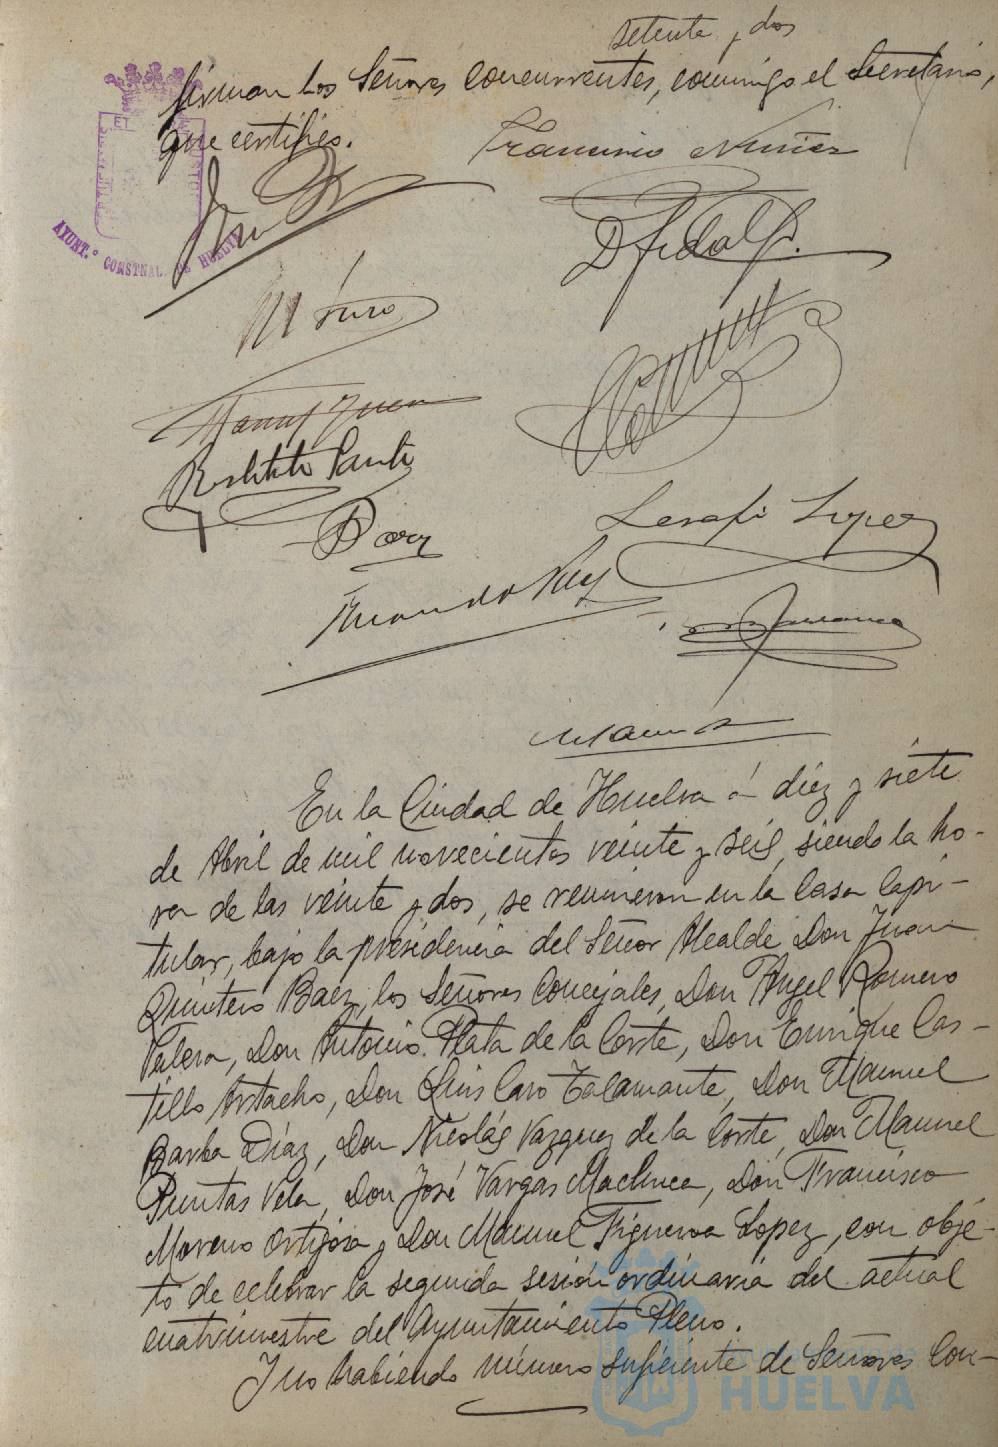 setenta y dos
firman los Señores concurrentes, conmigo el Secretario,
que certifico.
Francisco Nuñez
AYUNT.º CONSTNAL. DE HUELVA
D Fidalgo.
Restituto
Serafin Lopez
En la Ciudad de Huelva á diez y siete
de Abril de mil novecientos veinte y seis, siendo la ho-
ra de las veinte y dos, se reunieron en la Casa Capi-
tular, bajo la presidencia del Señor Alcalde Don Juan
Quintero Baez, los Señores Concejales, Don Angel Romero
Valera, Don Antonio Plata de la Corte, Don Enrique Cas-
tillo Artacho, Don Luis Caro Talamante, Don Manuel
Barba Díaz, Don Nicolás Vazquez de la Corte, Don Manuel
Puntas Vela, Don José Vargas Machuca, Don Francisco
Moreno Ortijosa y Don Manuel Figueroa Lopez, con obje-
to de celebrar la segunda sesión ordinaria del actual
cuatrimestre del Ayuntamiento Pleno.
Y no habiendo número suficiente de Señores Con-
HUELVA